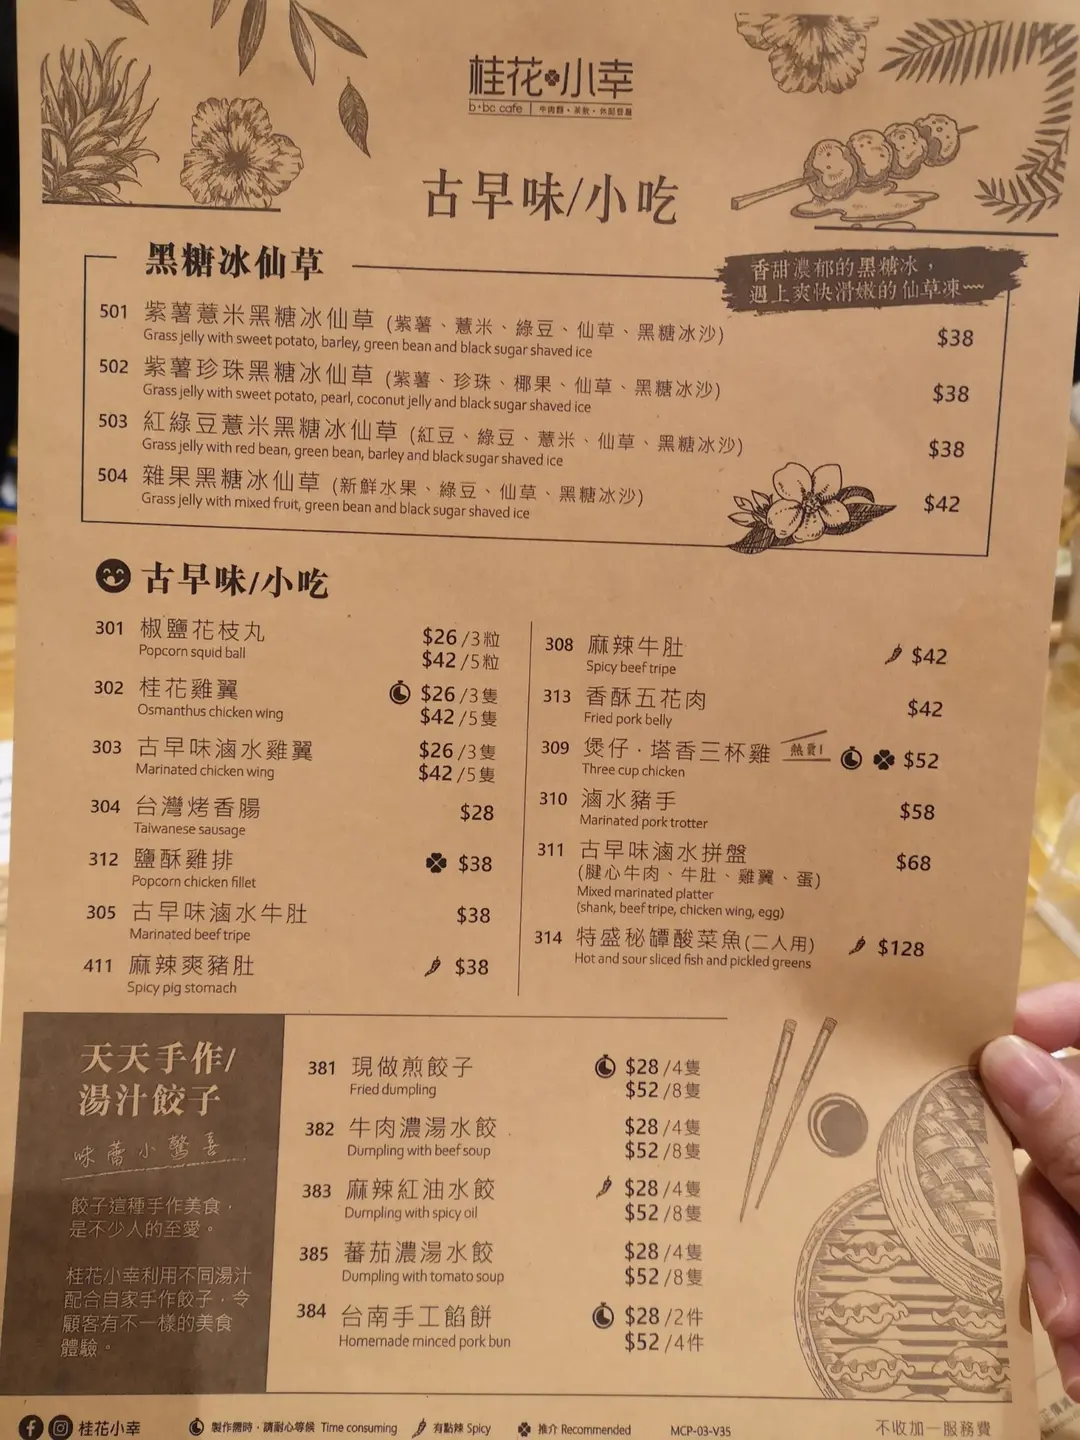 桂花小幸
b+bc cafe | 牛肉麵・茶飲・休閒餐廳
古早味/小吃
黑糖冰仙草
香甜濃郁的黑糖冰，
遇上爽快滑嫩的仙草凍~~
501 紫薯薏米黑糖冰仙草 (紫薯、薏米、綠豆、仙草、黑糖冰沙) $38
Grass jelly with sweet potato, barley, green bean and black sugar shaved ice
502 紫薯珍珠黑糖冰仙草 (紫薯、珍珠、椰果、仙草、黑糖冰沙) $38
Grass jelly with sweet potato, pearl, coconut jelly and black sugar shaved ice
503 紅綠豆薏米黑糖冰仙草 (紅豆、綠豆、薏米、仙草、黑糖冰沙) $38
Grass jelly with red bean, green bean, barley and black sugar shaved ice
504 雜果黑糖冰仙草 (新鮮水果、綠豆、仙草、黑糖冰沙) $42
Grass jelly with mixed fruit, green bean and black sugar shaved ice
古早味/小吃
301 椒鹽花枝丸 $26/3粒
Popcorn squid ball $42/5粒
302 桂花雞翼 $26/3隻
Osmanthus chicken wing $42/5隻
303 古早味滷水雞翼 $26/3隻
Marinated chicken wing $42/5隻
304 台灣烤香腸 $28
Taiwanese sausage
312 鹽酥雞排 $38
Popcorn chicken fillet
305 古早味滷水牛肚 $38
Marinated beef tripe
411 麻辣爽豬肚 $38
Spicy pig stomach
308 麻辣牛肚 $42
Spicy beef tripe
313 香酥五花肉 $42
Fried pork belly
309 煲仔．塔香三杯雞 熱賣! $52
Three cup chicken
310 滷水豬手 $58
Marinated pork trotter
311 古早味滷水拼盤 $68
(腱心牛肉、牛肚、雞翼、蛋)
Mixed marinated platter
(shank, beef tripe, chicken wing, egg)
314 特盛秘罈酸菜魚(二人用) $128
Hot and sour sliced fish and pickled greens
天天手作/
湯汁餃子
味蕾小驚喜
餃子這種手作美食，
是不少人的至愛。
桂花小幸利用不同湯汁
配合自家手作餃子，令
顧客有不一樣的美食
體驗。
381 現做煎餃子 $28/4隻
Fried dumpling $52/8隻
382 牛肉濃湯水餃 $28/4隻
Dumpling with beef soup $52/8隻
383 麻辣紅油水餃 $28/4隻
Dumpling with spicy oil $52/8隻
385 蕃茄濃湯水餃 $28/4隻
Dumpling with tomato soup $52/8隻
384 台南手工餡餅 $28/2件
Homemade minced pork bun $52/4件
桂花小幸 製作需時，請耐心等候 Time consuming 有點辣 Spicy 推介 Recommended MCP-03-V35 不收加一服務費